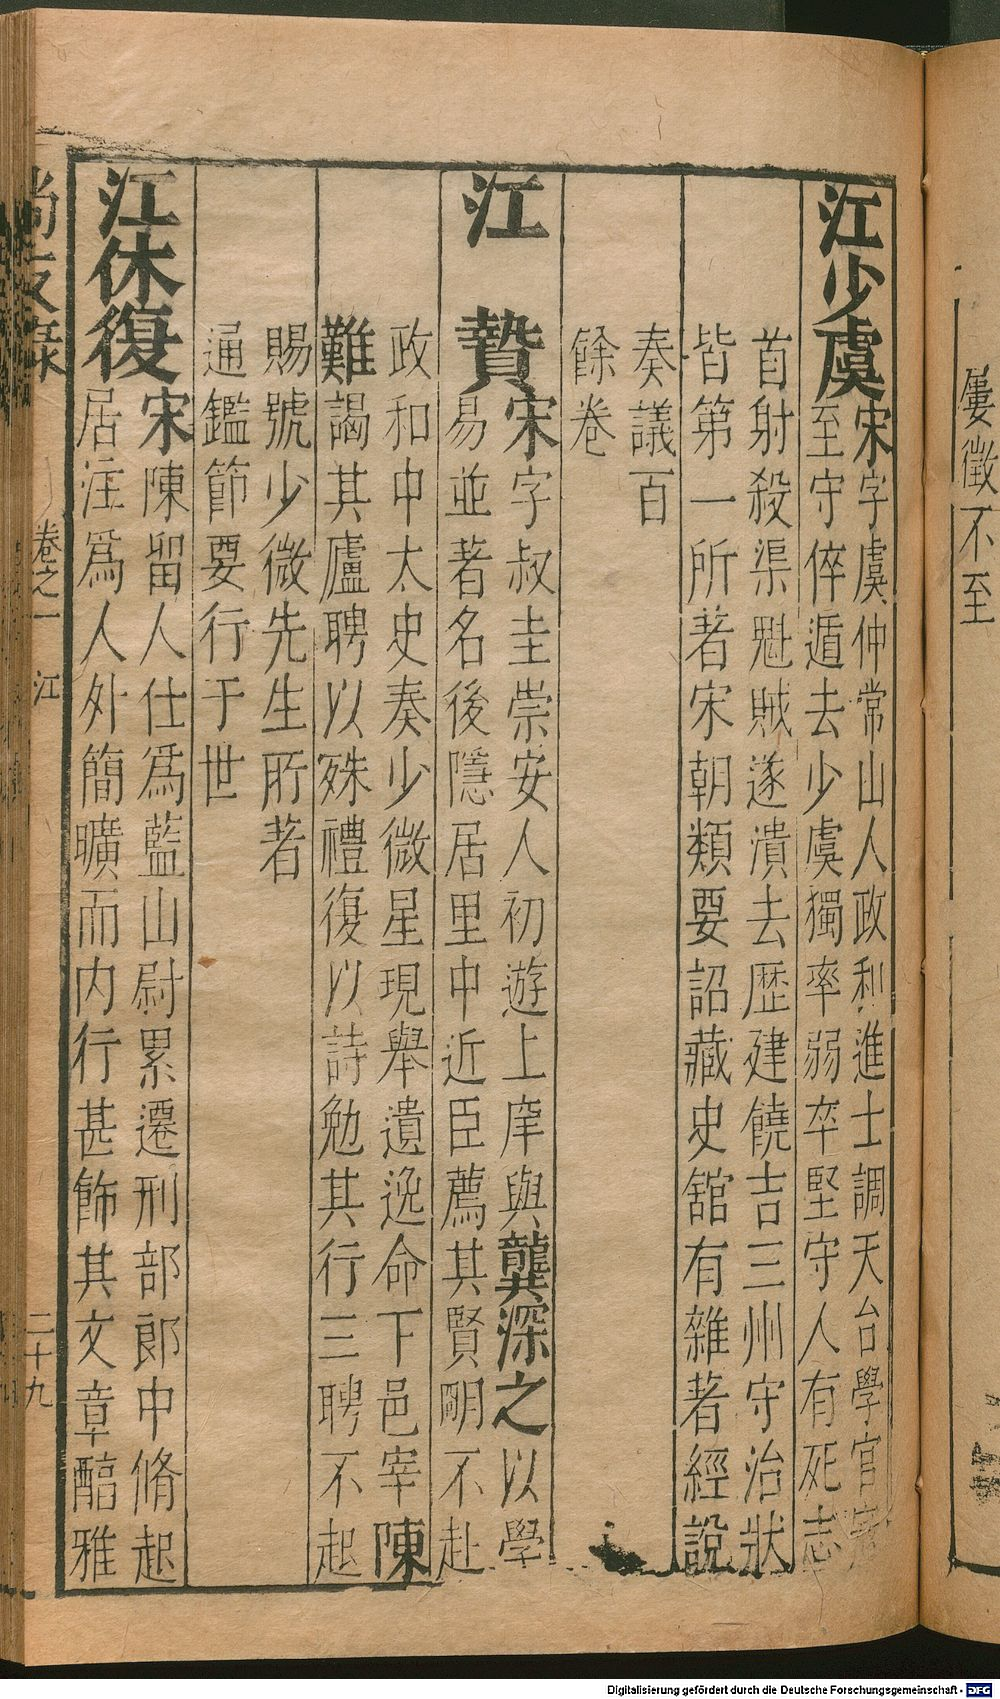 屢徵不至
江少虞
宋字虞仲常山人政和進士調天台學官寇
至守倅遁去少虞獨率弱卒堅守人有死志
首射殺渠魁賊遂潰去歴建饒吉三州守治狀
皆第一所著宋朝類要詔藏史舘有雜著經說
奏議百
餘卷
江贄
宋字叔圭崇安人初遊上庠與龔深之以學
易並著名後隱居里中近臣薦其賢朙不赴
政和中太史奏少微星現舉遺逸命下邑宰陳
難謁其廬聘以殊禮復以詩勉其行三聘不起
賜號少微先生所著
通鑑節要行于世
江休復
宋陳留人仕爲藍山尉累遷刑部郎中脩起
居注爲人外簡曠而内行甚飾其文章醕雅
尚友錄 卷之一 江 二十九
Digitalisierung gefördert durch die Deutsche Forschungsgemeinschaft - DFG